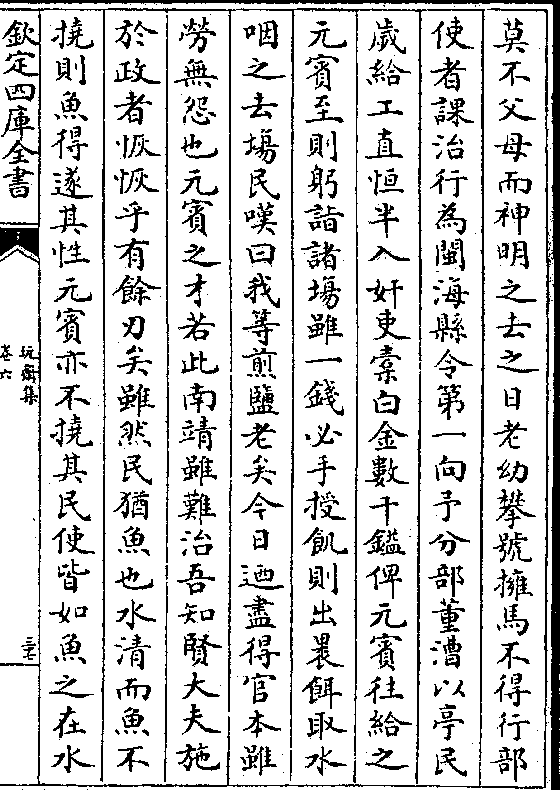 莫不父母而神明之去之日老幼攀號擁馬不得行部
使者課治行為閩海縣令第一向予分部董漕以亭民
歲給工直恒半入奸吏橐白金數千鎰俾元賓往給之
元賓至則躬詣諸塲雖一錢必手授飢則出裹餌取水
咽之去塲民嘆曰我等煎鹽老矣今日迺盡得官本雖
勞無怨也元賓之才若此南靖雖難治吾知賢大夫施
於政者恢恢乎有餘刃矣雖然民猶魚也水清而魚不
撓則魚得遂其性元賓亦不撓其民使皆如魚之在水
欽定四庫全書
玩齋集
卷六
三七